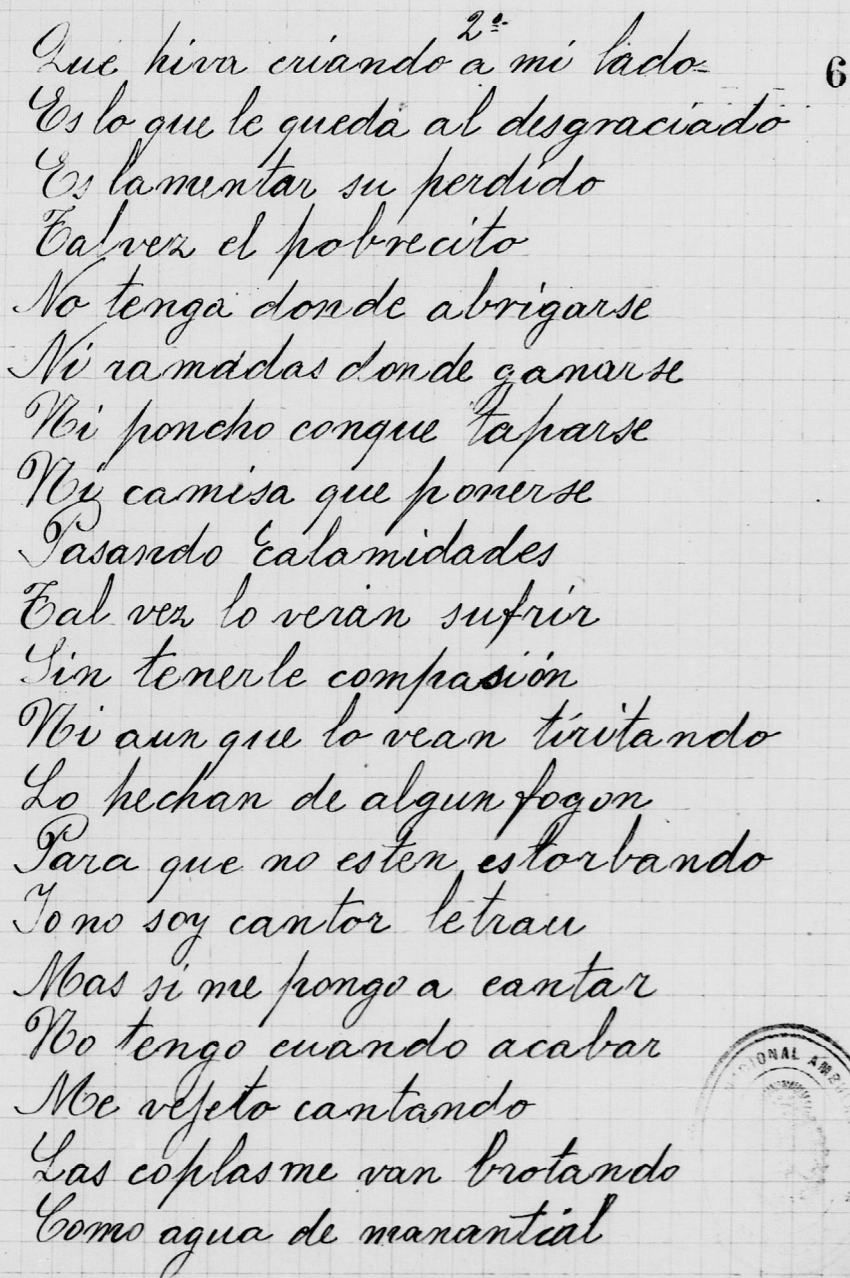 2º
Que hiva criando a mi lado= 6
Es lo que le queda al desgraciado
Es lamentar su perdido
Tal vez el pobrecito
No tenga donde abrigarse
Ni ramadas donde ganarse
Ni poncho conque taparse
Ni camisa que ponerse
Pasando calamidades
Tal vez lo verán sufrir
Sin tenerle compasión
Ni aun que lo vean tiritando
Lo hechan de algun fogon
Para que no esten estorbando
Io no soy cantor letrau
Mas si me pongo a cantar
No tengo cuando acabar
Me vejeto cantando
Las coplas me van brotando
Como agua de manantial